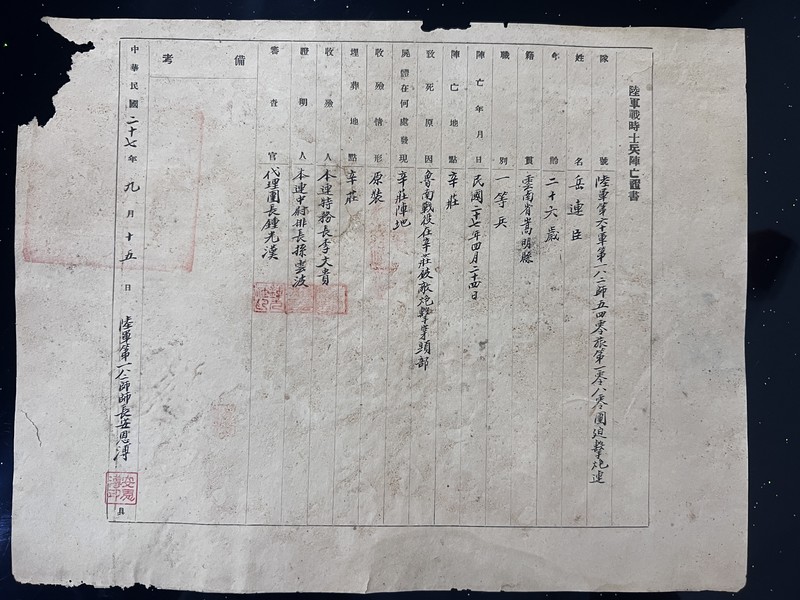 陸軍戰時士兵陣亡證書
隊號 陸軍第六十軍第一八二師五四零旅第一零八零團迫擊炮連
姓名 岳連臣
年齡 二十六歲
籍貫 雲南省嵩明縣
職別 一等兵
陣亡年月日 民國二十七年四月二十四日
陣亡地點 辛莊
致死原因 魯南戰役在辛莊被敵炮擊掌頭部
屍體在何處發現 辛莊陣地
收殮情形 原裝
埋葬地點 辛莊
收殮人 本連特務長李文貴
證明人 本連中尉排長孫雲波
審查官 代理團長鍾光漢
備考
中華民國二十七年九月十五日 陸軍第一八二師師長安恩溥
安恩溥印
具